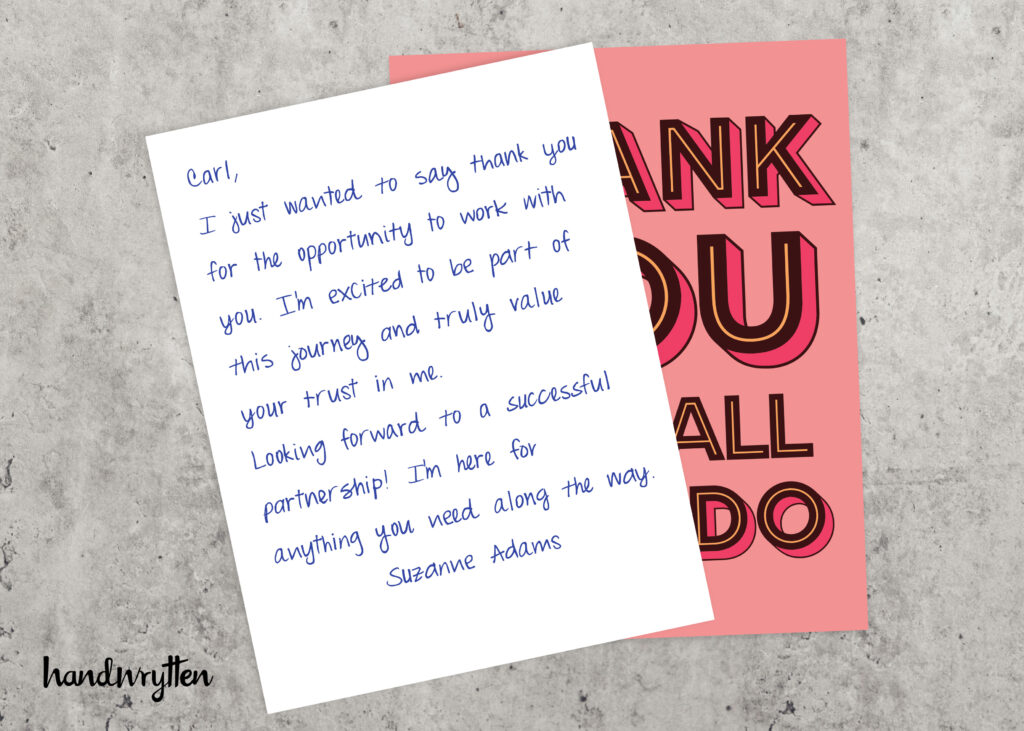 Carl,
I just wanted to say thank you
for the opportunity to work with
you. I'm excited to be part of
this journey and truly value
your trust in me.
Looking forward to a successful
partnership! I'm here for
anything you need along the way.
Suzanne Adams
ANK
OU
ALL
DO
handwrytten